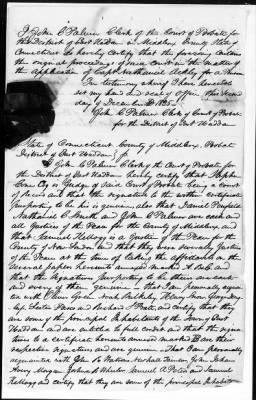 I John C Palmer Clerk of the Court of Probate for
the District of East Haddam in Middlesex County State of
Connecticut do hereby certify that the foregoing contains
the original proceedings of said court in the matter of
the application of Capt. Nathaniel Ackley for a Pension
In testimony whereof I have hereunto
set my hand and seal of office this second
day of December AD 1835
John C Palmer Clerk of Court of Probate
for the District of East Haddam
State of Connecticut County of Middlesex Probate
District of East Haddam ss
I John C Palmer Clerk of the Court of Probate for
the District of East Haddam hereby certify that Stephen
Cone Esq is Judge of said Court of Probate being a court
of record and that the signature to the within certificate
purporting to be his is genuine also that Daniel
Nathaniel C Smith and John C Palmer are each and
all Justices of the Peace for the County of Middlesex and
that Samuel Kellogg is a Justice of the Peace for the
County of New London and that they were severally Justices
of the Peace at the time of taking the affidavits on the
several papers hereunto annexed marked A B &c and
that the signatures purporting to be theirs are each
and every of them genuine — that I am personally acquain
ted with Oliver Green Noah
Peters and Richard and certify that they
are some of the principal Inhabitants of the Town of East
Haddam and are entitled to full credit and that the signa
tures to a certificate hereunto annexed marked are their
respective signatures and are genuine — That I am personally
acquainted with John
Avery Morgan Samuel A and Samuel
Kellogg and certify that they are some of the principal Inhabitan